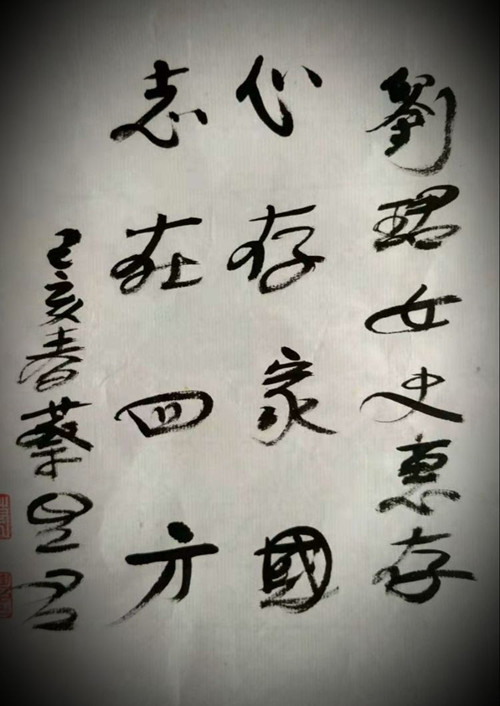 劉珺女史惠存
心存家國
志在四方
己亥春蔡